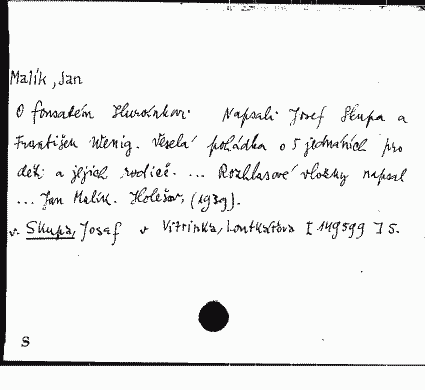 Malík, Jan
O fousatém Hurvínkovi. Napsali Josef Skupa a
František Wenig. Veselá pohádka o 5 jednáních pro
děti a jejich rodiče. ... Rozhlasové vložky napsal
... Jan Malík. Holešov, (1939).
v. Skupa, Josef v Vitrinka, Loutkářova I 149599 I S.
S